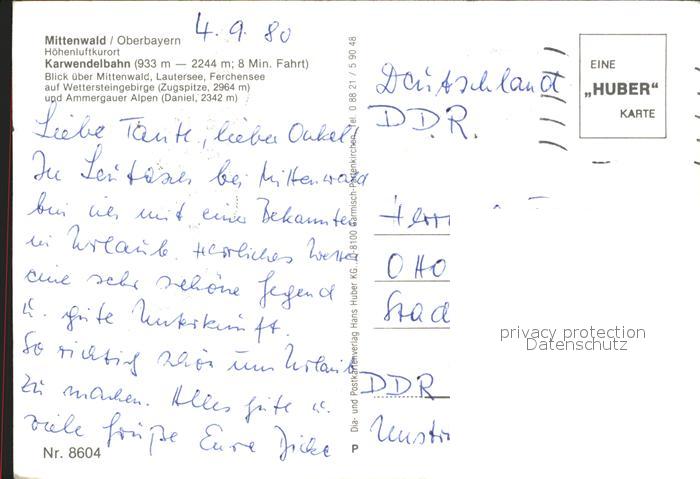 4.9.80
Mittenwald / Oberbayern
Höhenluftkurort
Karwendelbahn (933 m — 2244 m; 8 Min. Fahrt)
Blick über Mittenwald, Lautersee, Ferchensee
auf Wettersteingebirge (Zugspitze, 2964 m)
und Ammergauer Alpen (Daniel, 2342 m)
Liebe Tante, lieber Onkel!
In Leutasch bei Mittenwald
bin ich mit einer Bekannten
in Urlaub. Herrliches Wetter
eine sehr schöne Gegend
u. gute Unterkunft.
So richtig schön um Urlaub
zu machen. Alles gute u.
viele Grüße Eure
Nr. 8604
Dia- und Postkartenverlag Hans Huber KG., D-8100 Garmisch-Partenkirchen, Tel. 0 88 21 / 5 90 48
P
EINE
„HUBER"
KARTE
Deutschland
DDR.
Herrn
Otto
Stad
DDR
Unstr
privacy protection
Datenschutz